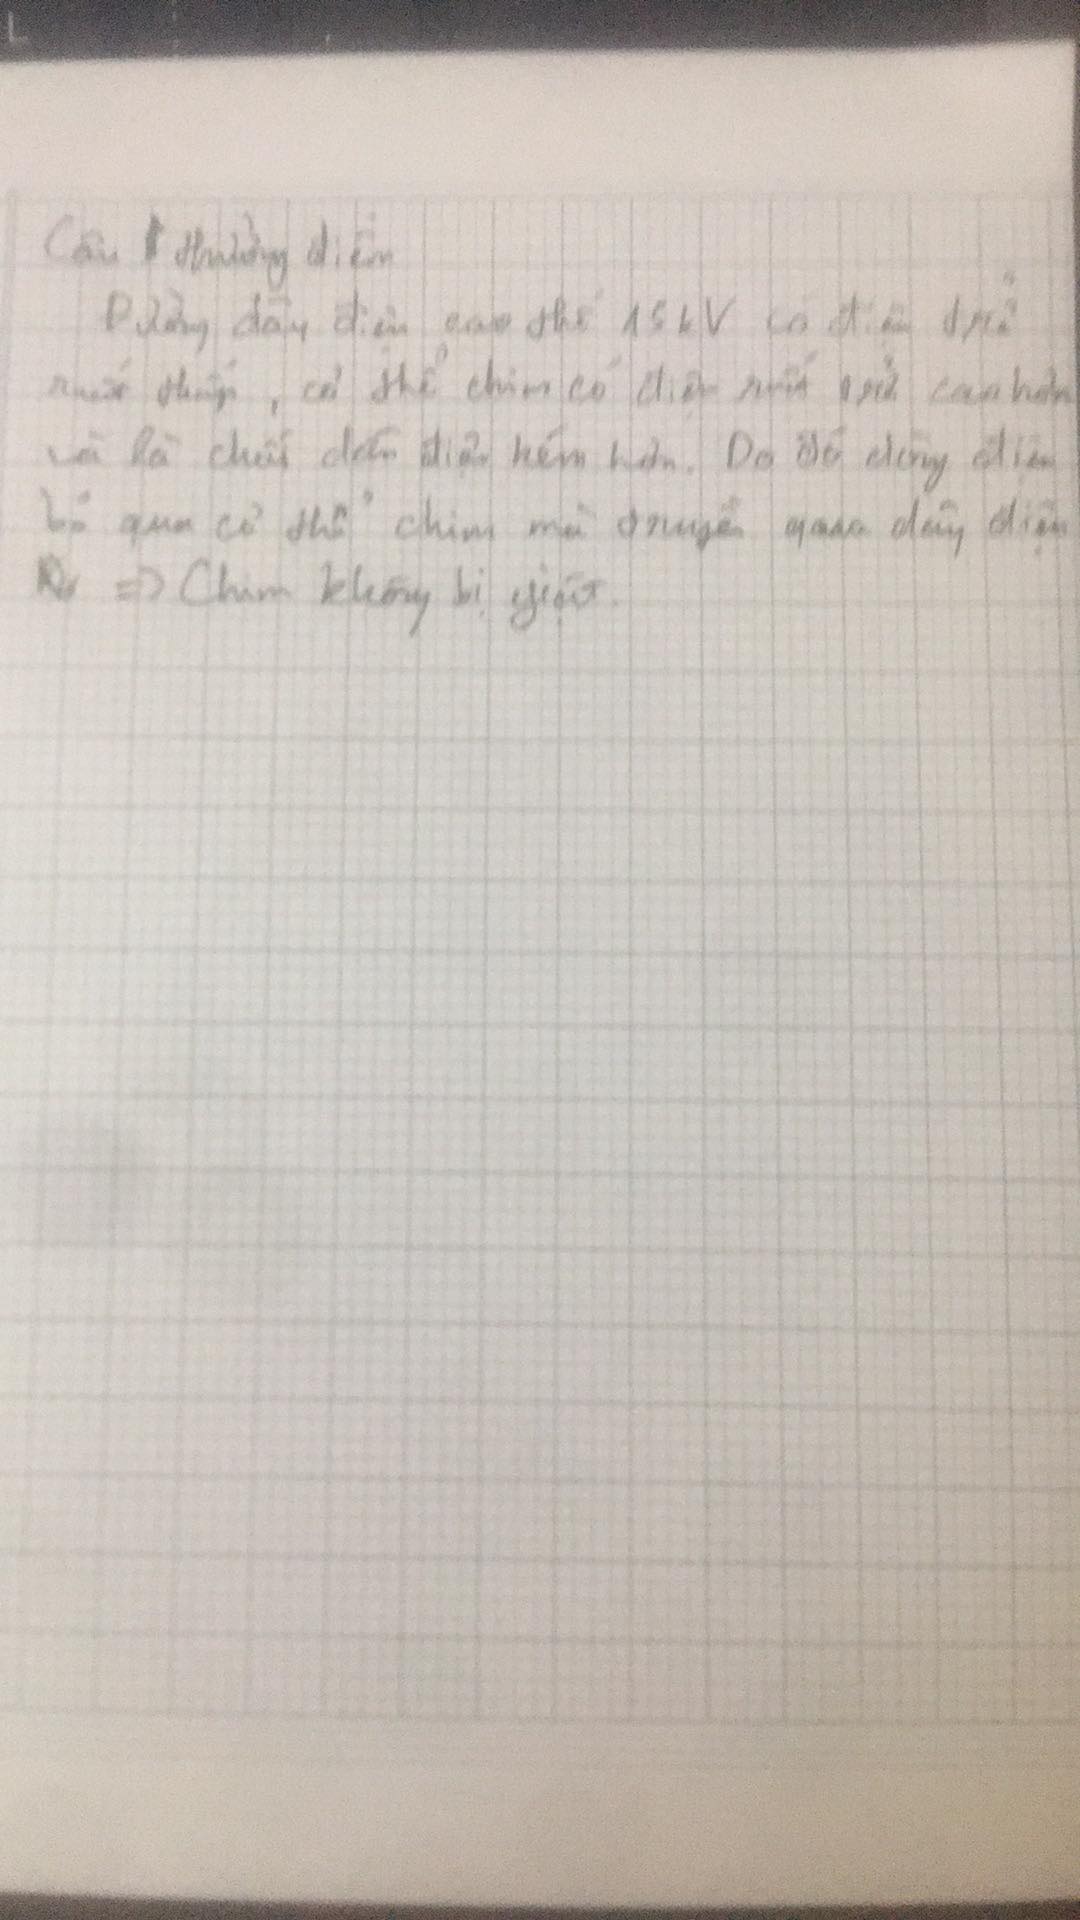 Câu thưởng điểm
Đường dây điện cao thế 15kV có điện trở
rất thấp, cơ thể chim có điện trở cao hơn
và là chất dẫn điện kém hơn. Do đó dòng điện
bỏ qua cơ thể chim mà truyền qua dây điện
=> Chim không bị giật.